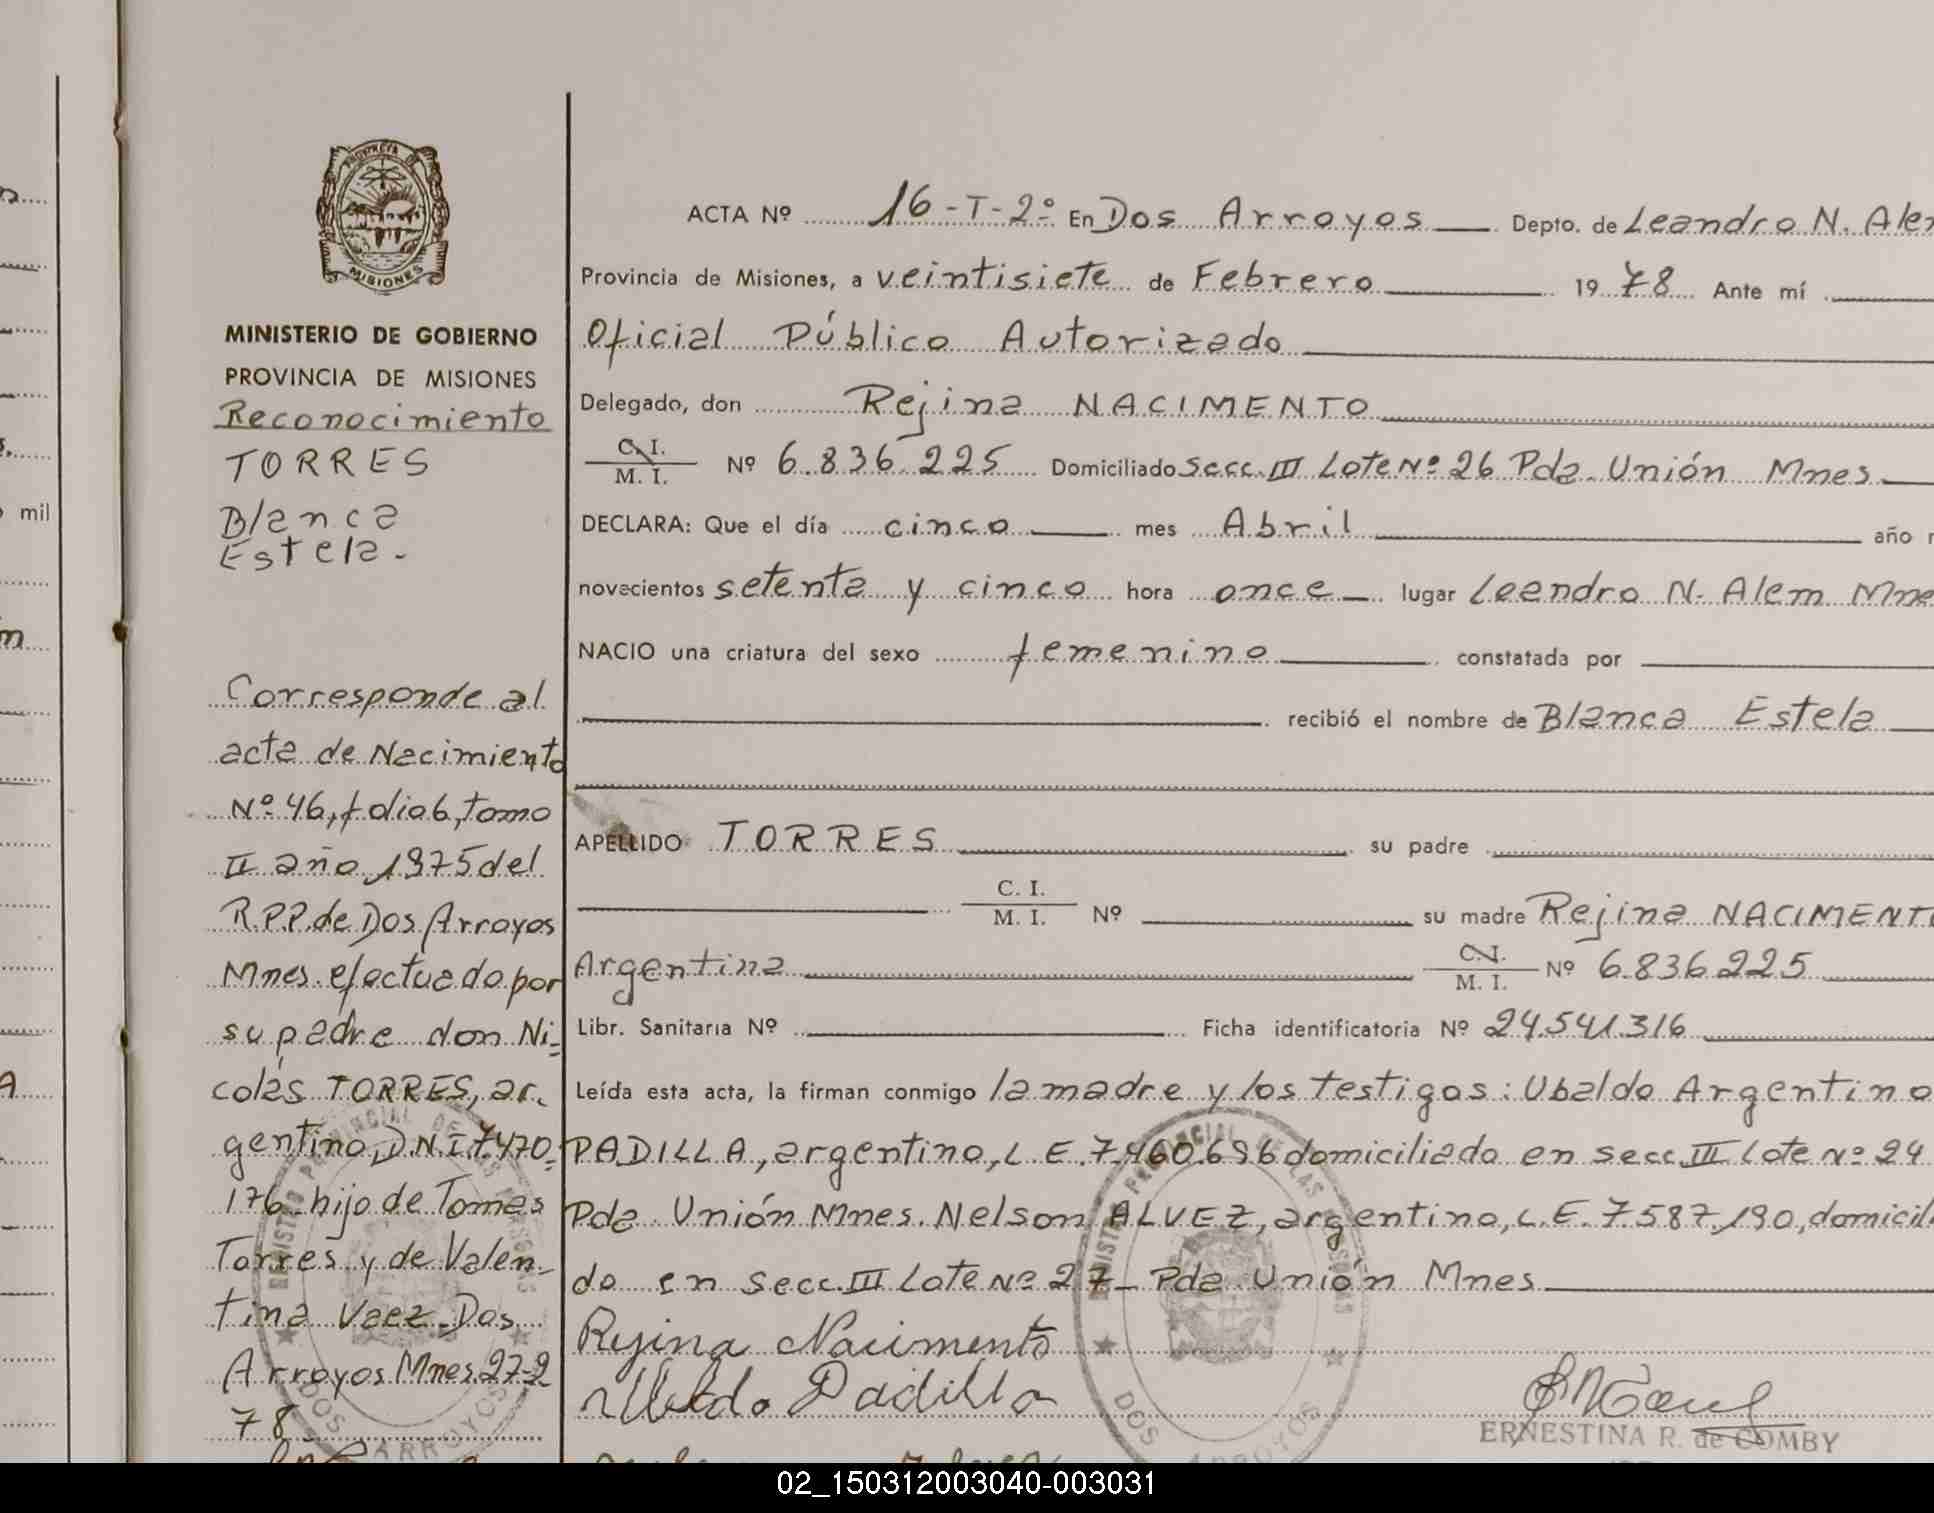 PROVINCIA DE
MISIONES
MINISTERIO DE GOBIERNO
PROVINCIA DE MISIONES
Reconocimiento
TORRES
Blanca
Estela.-
Corresponde al
acta de Nacimiento
Nº 46, folio 6, tomo
II año 1975 del
R.P.P. de Dos Arroyos
Mnes. efectuado por
su padre don Ni-
colás TORRES, ar-
gentino, D.N.I. 7.470.-
176- hijo de Tomas
Torres y de Valen-
tina Vaez- Dos
Arroyos Mnes. 27-2
78
ACTA Nº 16-T-2º En Dos Arroyos Depto. de Leandro N. Alem
Provincia de Misiones, a veintisiete de Febrero 1978 Ante mí
Oficial Público Autorizado
Delegado, don Rejina NACIMENTO
C. I.
M. I. Nº 6.836.225 Domiciliado Secc. III Lote Nº 26 Pda. Unión Mnes
DECLARA: Que el día cinco mes Abril año
novecientos setenta y cinco hora once lugar Leandro N. Alem Mne
NACIO una criatura del sexo femenino constatada por
recibió el nombre de Blanca Estela
APELLIDO TORRES su padre
C. I.
M. I. Nº su madre Rejina NACIMENTO
Argentina C. I.
M. I. Nº 6.836.225
Libr. Sanitaria Nº Ficha identificatoria Nº 24.541.316
Leída esta acta, la firman conmigo la madre y los testigos: Ubaldo Argentino
PADILLA, argentino, L.E. 7.460.696 domiciliado en secc. III Lote Nº 24
Pda. Unión Mnes. Nelson ALVEZ, argentino, L.E. 7.587.190, domicil
do en secc. III Lote Nº 27- Pda. Unión Mnes
Rejina Nacimento
Ubaldo Padilla
ERNESTINA R. de COMBY
DOS ARROYOS
DOS ARROYOS
mil
02_150312003040-003031